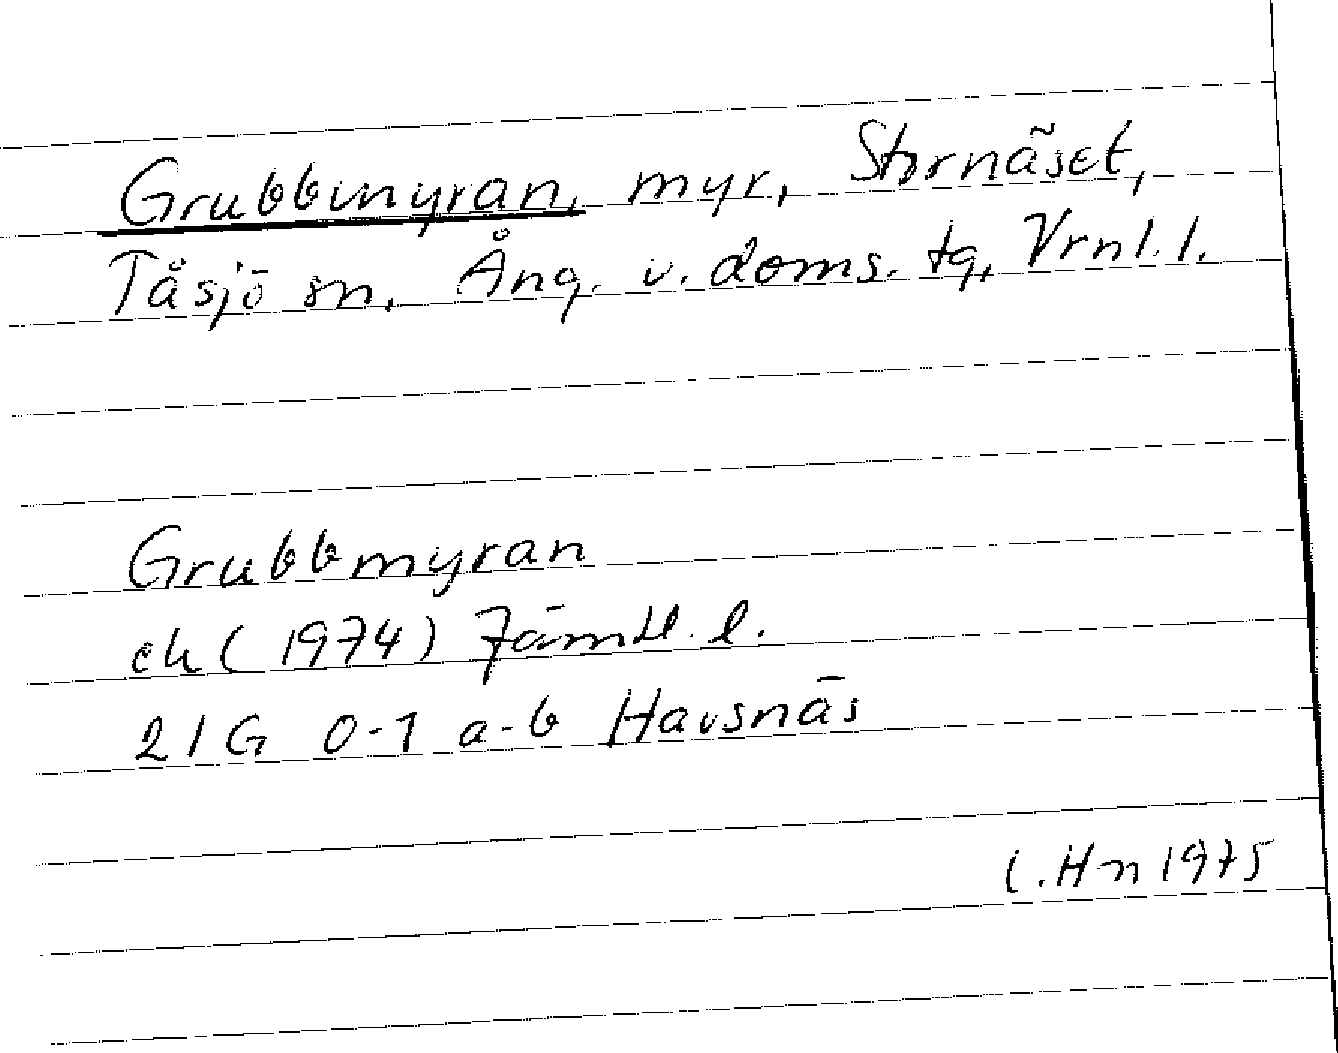 Grubbmyran, myr, Stornäset,
Tåsjö sn. Ång. v. doms. tg, Vrnl. l.
Grubbmyran
ek (1974) Jämtl. l.
21G 0-1 a-b Havsnäs
C. Hn 1975